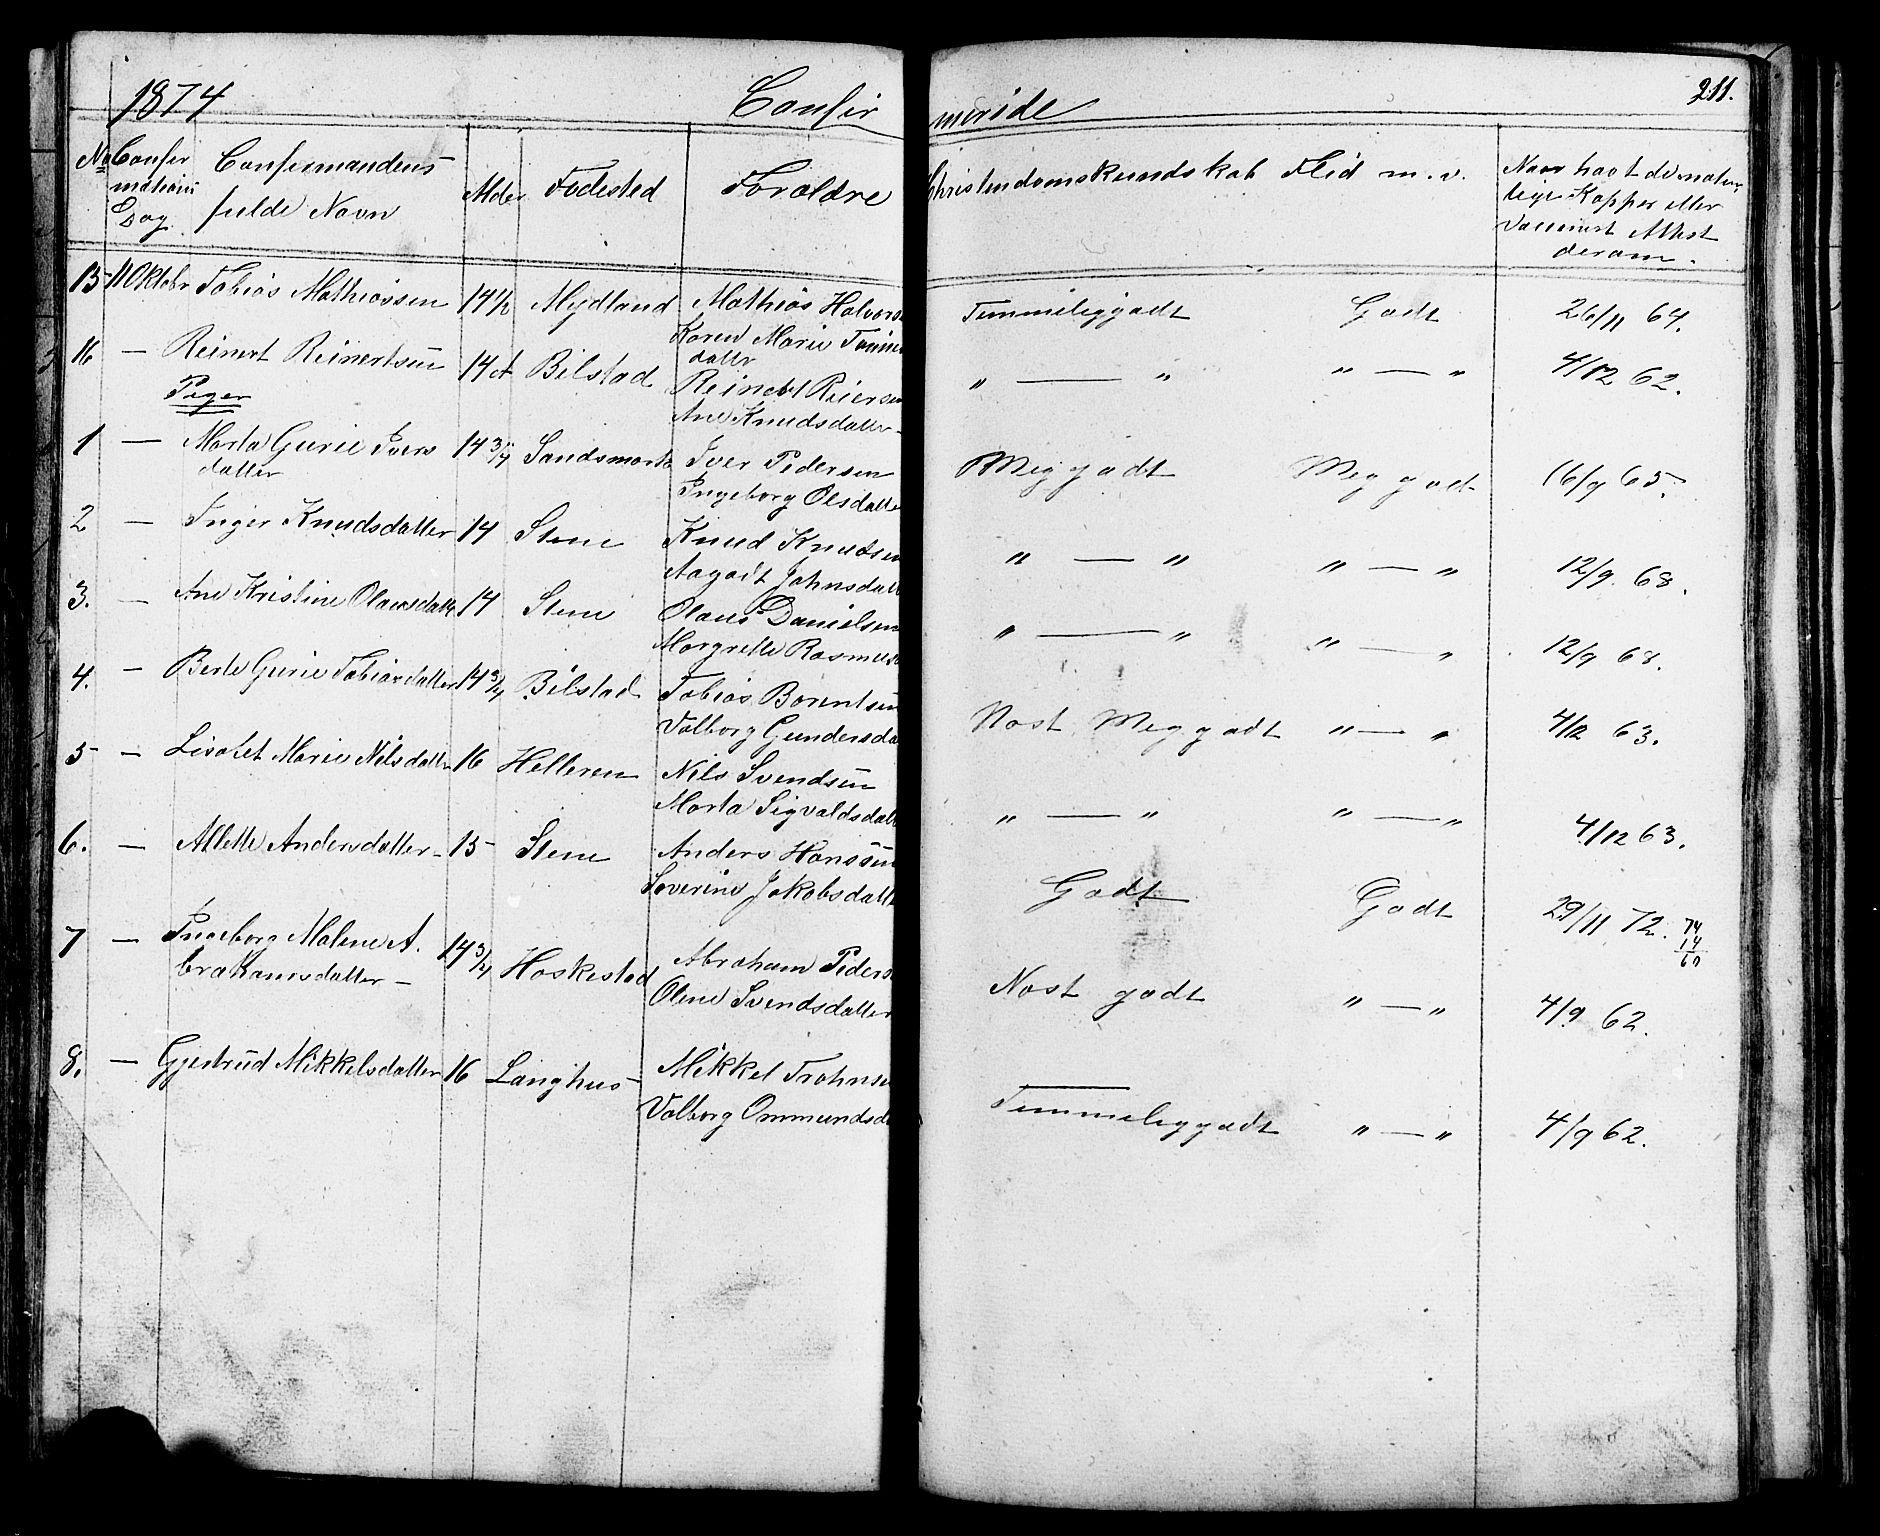 1874 Confir
meride 211.
No Confir
mations
Dag
Confirmandens
fulde Navn
Alder Fødested Forældre
Christendomskundskab Flid m. v.
Naar havt de natur
lige Kopper eller
Vaccinert Attest
derom.
15 11 Oktobr Tobias Mathiassen 14½ Mydland Mathias Halvors
Karen Marie Tønnes
datter
Temmeliggodt Godt 26/11 64.
16 — Reinert Reinertsen 14 Bilstad Reinert Reiersen
Ane Knudsdatter
" — " " — " 4/12 62.
Piger
1 — Marta Gurie Ivers
datter
14 3/4 Sandsmark Iver Pedersen
Ingeborg Olsdatte
Meg godt Meg godt 16/9 65.
2 — Inger Knudsdatter 14 Stene Knud Knudsen
Aagodt Johnsdatt
" — " " — " 12/9. 68.
3. — Ane Kristine Olausdatte 14 Stene Olaus Danielsen
Margrethe Rasmus
" — " " — " 12/9 68.
4. — Berte Gurie Tobiasdatter 14 3/4 Bilstad Tobias Borentsen
Valborg Gundersda
Nost Meg godt " — " 4/12 63.
5 — Lisabet Marie Nilsdatte 16 Helleren Nils Svendsen
Marta Sigvaldsdatt
" — " " — " 4/12 63.
6. — Allette Andersdatter 15 Stene Anders Hanssen
Severine Jakobsdatt
Godt Godt 29/11 72.
74
14
60
7 — Ingeborg Malene A.
brahamsdatter —
14 3/4 Haskestad Abraham Peders
Olene Svendsdatter
Nost godt " — " 4/9 62.
8. — Gjertrud Mikkelsdatter 16 Langhus Mikkel Trohnse
Valborg Ommundsda
Temmeliggodt " — " 4/9 62.